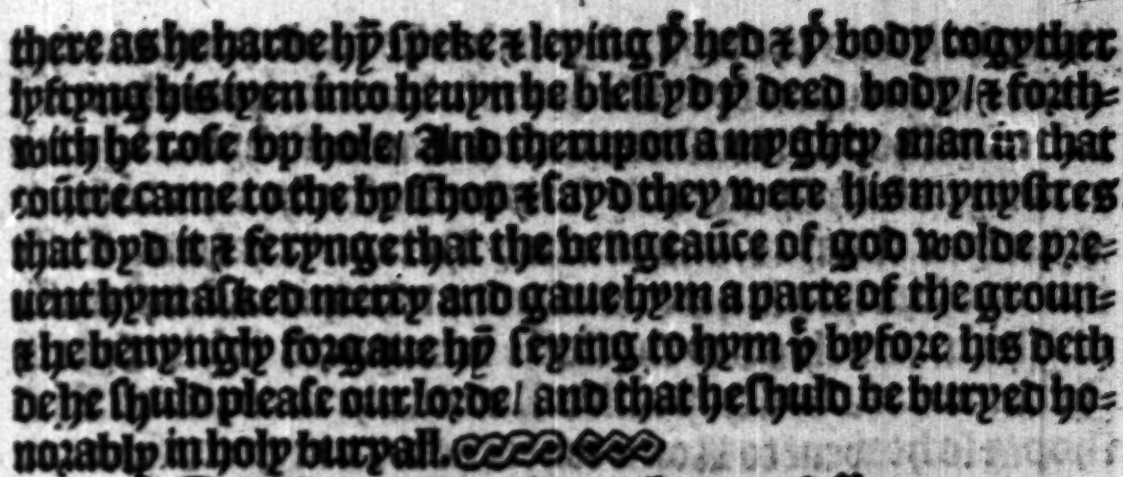 there as he harde hȳ speke ⁊ leying yͤ hed ⁊ yͤ body togyther
lyftyng his iyen into heuyn he blessyd yͤ deed body / ⁊ forth=
with he rose vp hole / And therupon a myghty man in that
coūtre came to the bysshop ⁊ sayd they were his mynystres
that dyd it ⁊ ferynge that the vengeaūce of god wolde pre=
uent hym asked mercy and gaue hym a parte of the groun=
⁊ he benyngly forgaue hȳ seying to hym yͭ byfore his deth
de he shuld please our lorde / and that he shuld be buryed ho=
norably in holy buryall.